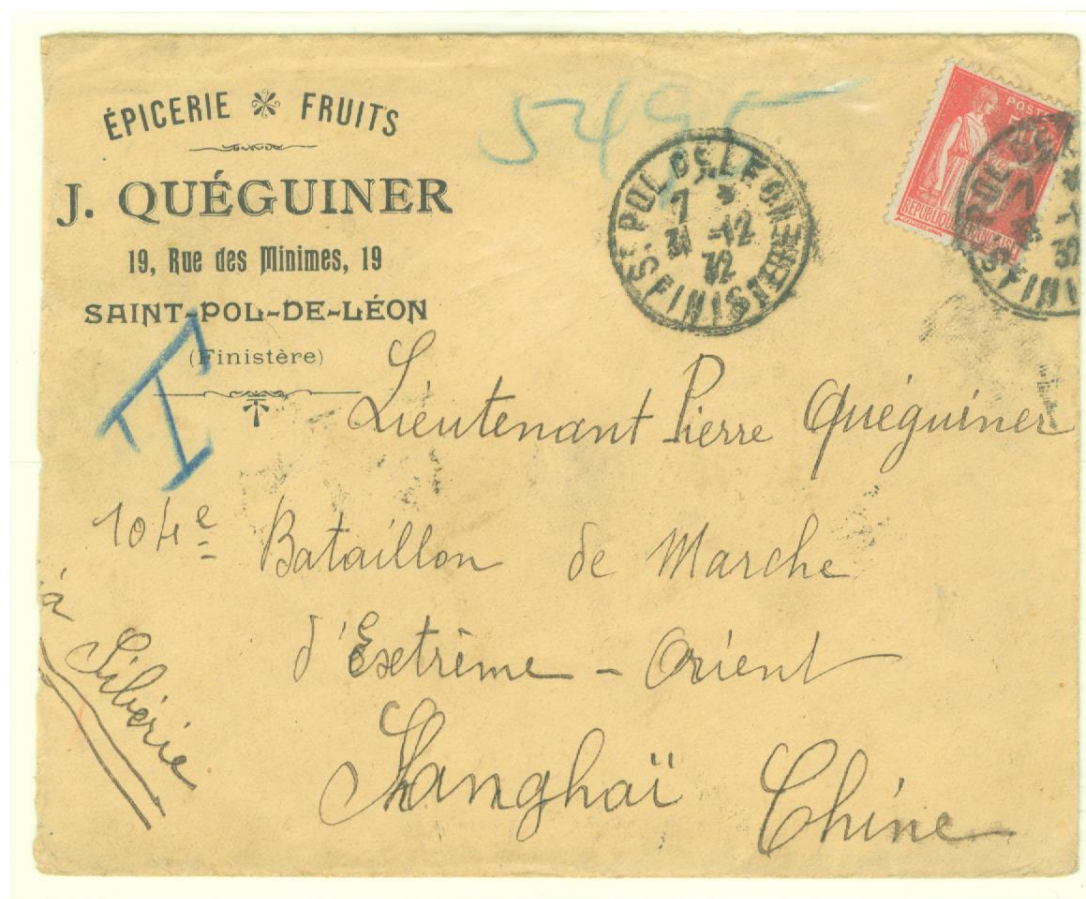 ÉPICERIE FRUITS
J. QUÉGUINER
19, Rue des Minimes, 19
SAINT-POL-DE-LÉON
(Finistère)
T
549
ST. POL DE LEON
7
31 -12
32
FINISTERE
POSTE
REPUBLIQUE FRANÇAISE
POL DE
7
32
FINI
Lieutenant Pierre Quéguiner
104e Bataillon de Marche
d'Extrême-Orient
Shanghaï Chine
Sibérie